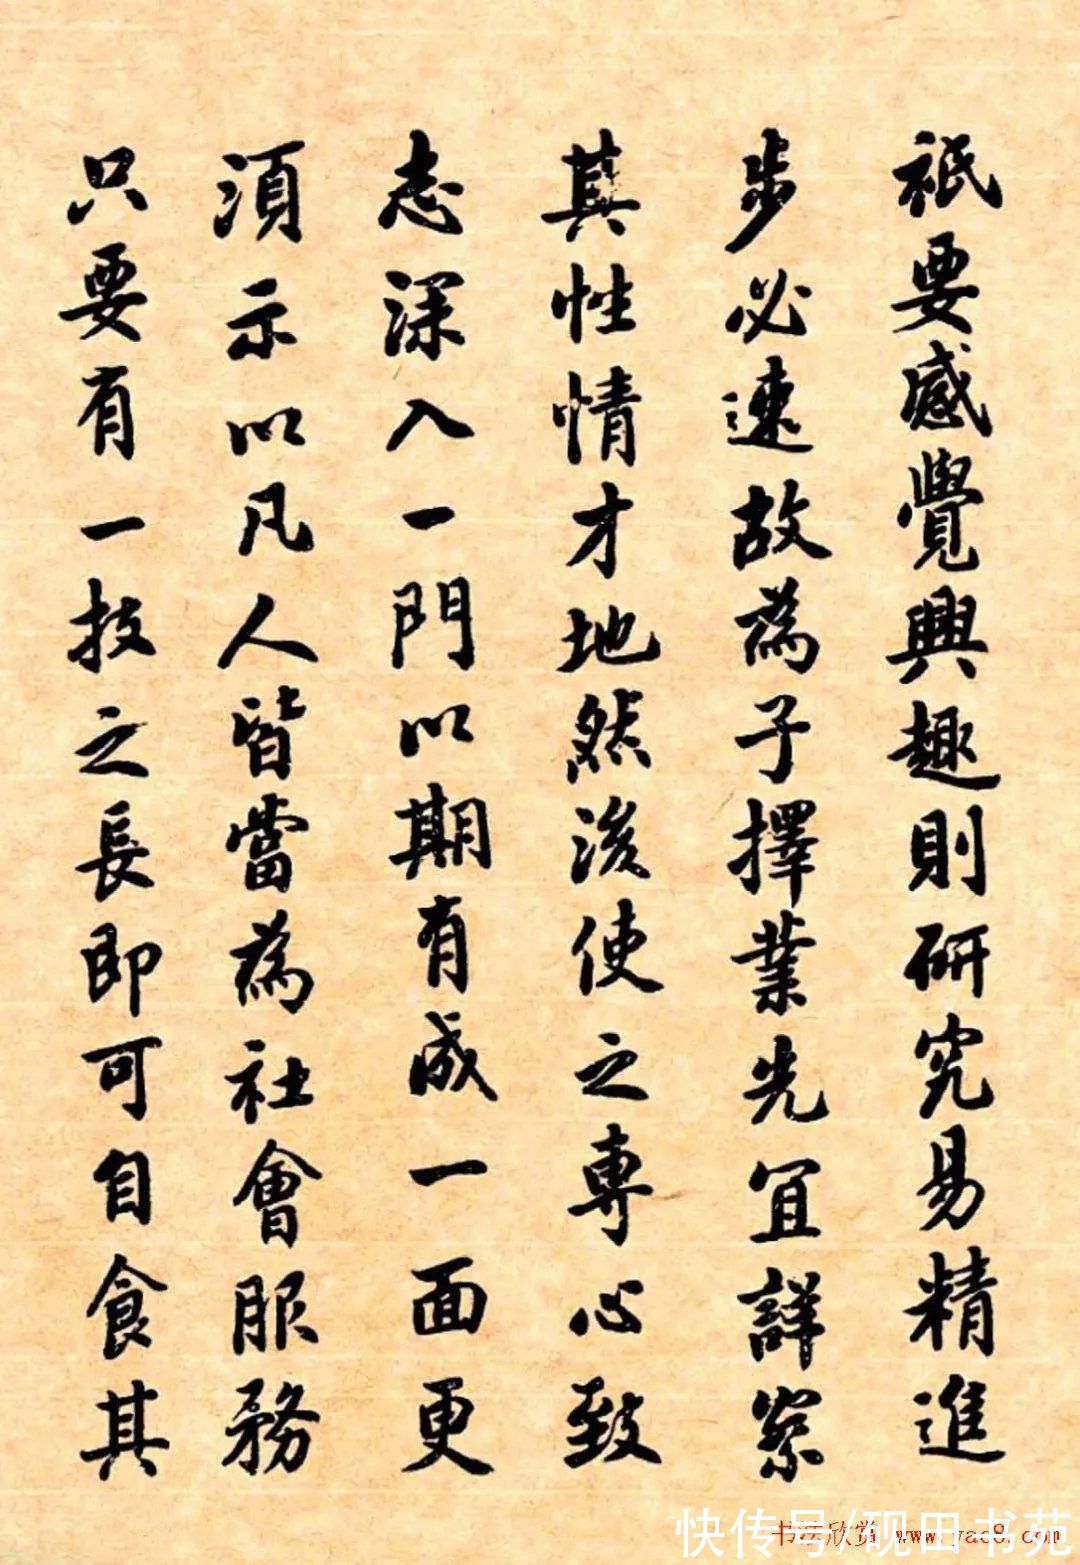 祇要感覺興趣則研究易精進
步必速故為子擇業先宜詳察
其性情才地然後使之專心致
志深入一門以期有成一面更
須示以凡人皆當為社會服務
只要有一技之長即可自食其
书法欣赏 www.yac8.com
快传号/砚田书苑